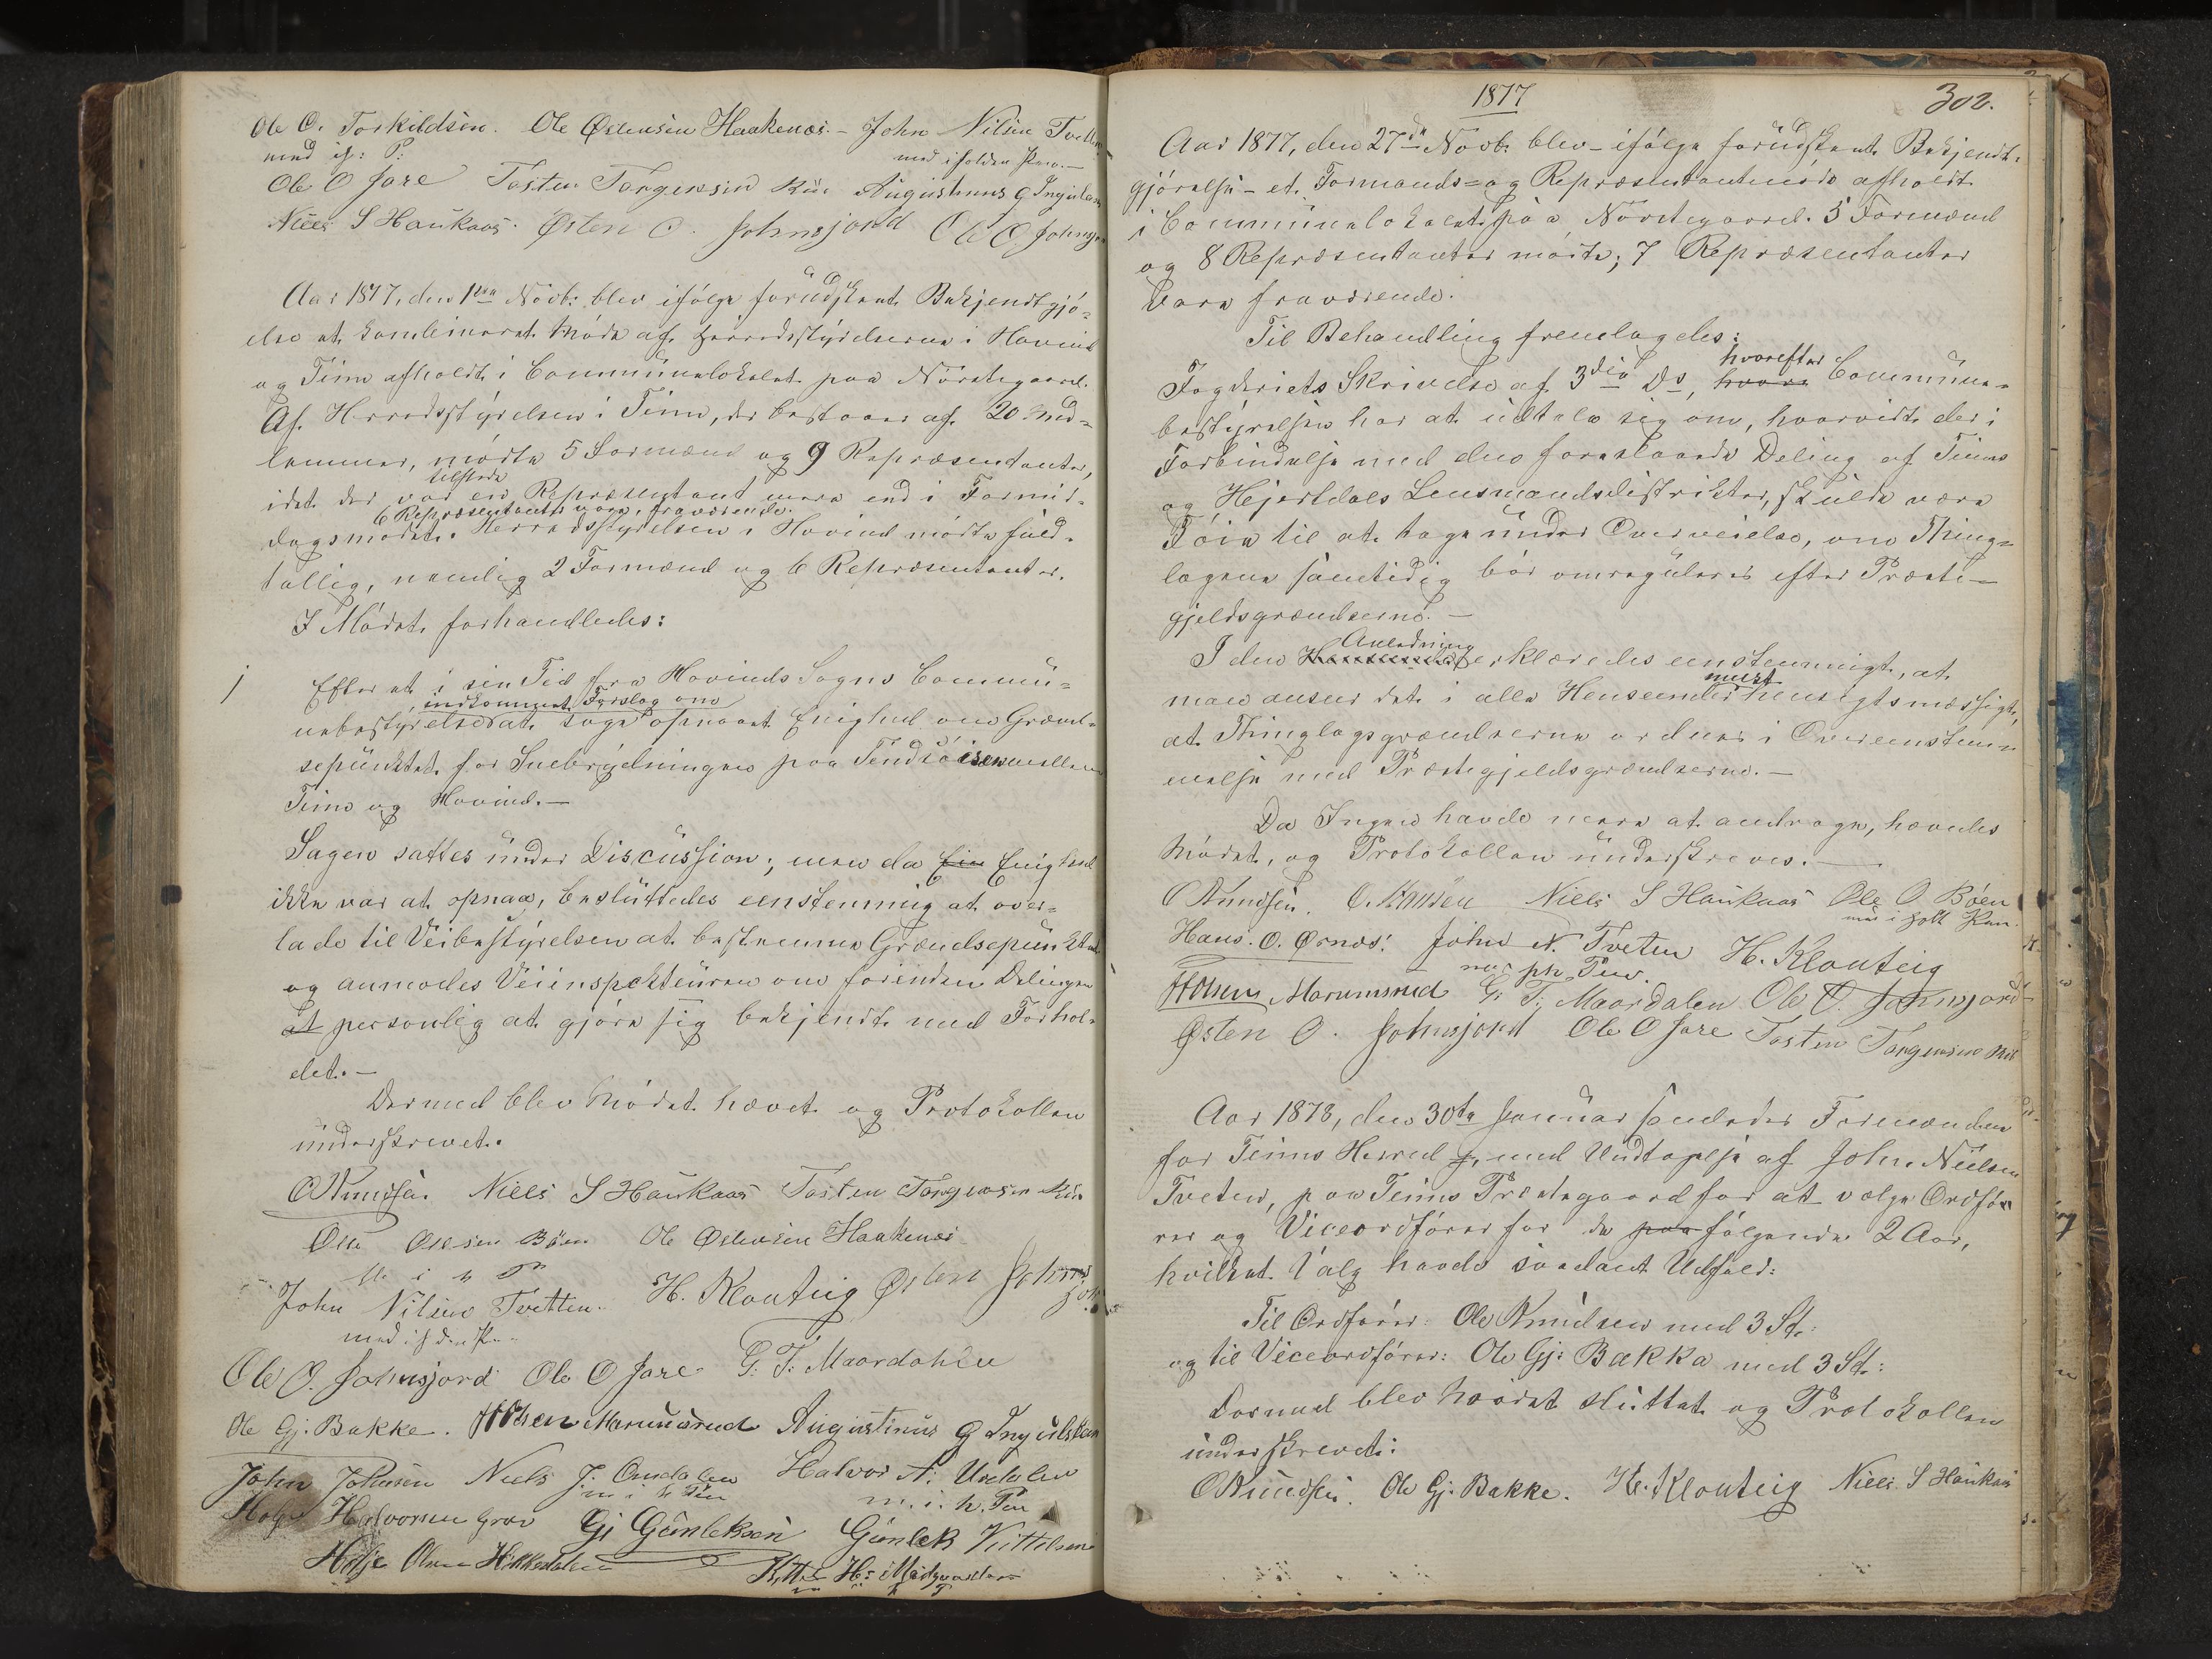 Ole O. Torkildsen. Ole Østensen Haakenæs. – John Nilsen Tvetten
med if: P:
med iholden Pen. –
Ole O Jare Tosten Torgersen Augustinus G Ingulsen
Niels S Haukaas. Østen O. Johnsjord Ole O. Johnsjord
Aar 1877, den 1ste Novb: blev ifølge forudskent Bekjendtgjø-
else et kombineret Møde af Herredsstyrelserne i Hovind
og Tinn afholdt i Communelokalet paa Nørstegaard.
Af Herredsstyrelsen i Tinn, der bestaaer af 20 Med-
lemmer, mødte 5 Formænd og 9 Repræsentanter,
tilstede
idet der var en Repræsentant mere end i Formid-
6 Repræsentanter vare fraværende.
dagsmødet. Herredsstyrelsen i Hovind mødte fuld-
tallig, nemlig 2 Formænd og 6 Repræsentanter.
I Mødet forhandledes:
1
Efter at i sin Tid fra Hovinds Sogns Commu-
indkommet Forslag om
nebestyrelse at søge opnaaet Enighed om Grænd-
sepunktet for Snebrydningen paa Tindsøisen mellem
Tinn og Hovind. –
Sagen sattes under Discussion; men da Ein Enighed
ikke var at opnaa, besluttedes eenstemmig at over-
lade til Veibestyrelsen at bestemme Grændsepunktet
og anmodes Veiinspekteuren om forinden Delingen
at personlig at gjøre sig bekjendt med Forhol-
det. –
Dermed blev Mødet hævet og Protokollen
underskrevet.
OKnudsen. Niels S Haukaas Tosten Torgersen
Ole Olesen Bøen Ole Østensen Haakenæs
M i h P
John Nilsen Tvetten. H. Klouteig Østen Johnsjord
med if den P
Ole O. Johnsjord Ole O Jare G. T. Maardahlen
Ole Gj. Bakke. HOlsen Marumsrud Augustinus G Ingulsen
John Johnsen Niels J. Omdalen Halvor A. Undalen
m i h Pen m. i. h. Pen
Helge Halvorsen Grav Gj Gunleksen Gunlek Kittilsen
Helje Olsen Kittil H: Midgaarden
1877
302.
Aar 1877, den 27de Novb: blev – ifølge forudskent Bekjendt-
gjørelse – et Formands- og Repræsentantmøde afholdt
i Communelokalet paa Nørstegaard. 5 Formænd
og 8 Repræsentanter mødte; 7 Repræsentanter
vare fraværende.
Til Behandling fremlagdes:
hvorefter
Fogderiets Skrivelse af 3die Ds, hvori Commune-
bestyrelsen har at udtale sig om, hvorvidt der i
Forbindelse med den foreslaaede Deling af Tinns
og Hjertdals Lensmandsdistrikter, skulde være
Føie til at tage under Overveielse, om Thing-
lagene samtidig bør omreguleres efter Præste-
gjeldsgrændserne. –
Anledning
I den Henseende erklæredes eenstemmigt, at
mest
man anser det i alle Henseender hensigtsmæssigt,
at Thinglagsgrændserne ordnes i Overeenstem-
melse med Præstegjeldsgrændserne. –
Da Ingen havde mere at andrage, hævedes
Mødet, og Protokollen underskreves. –
OKnudsen. O. Hansen Niels S Haukaas Ole O. Bøen
med i holt Pen.
Hans. O. Ørnes. John N. Tveten H. Klouteig
med ph Pen.
HOlsen Marumsrud G. T. Maardalen Ole O. Johnsjord
Østen O. Johnsjord Ole O Jare Tosten Torgersen
Aar 1878, den 30te Januar samledes Formændene
for Tinns Herred f, med Undtagelse af John Nielsen
Tveten, paa Tinns Præstegaard for at vælge Ordfø-
rer og Viceordfører for de paa følgende 2 Aar,
hvilket Valg havde saadant Udfald:
Til Ordfører: Ole Knudsen med 3 St.:
og til Viceordfører: Ole Gj: Bakka med 3 St.:
Dermed blev Mødet sluttet og Protokollen
underskrevet:
OKnudsen. Ole Gj. Bakke. H. Klouteig Niels S Haukaas